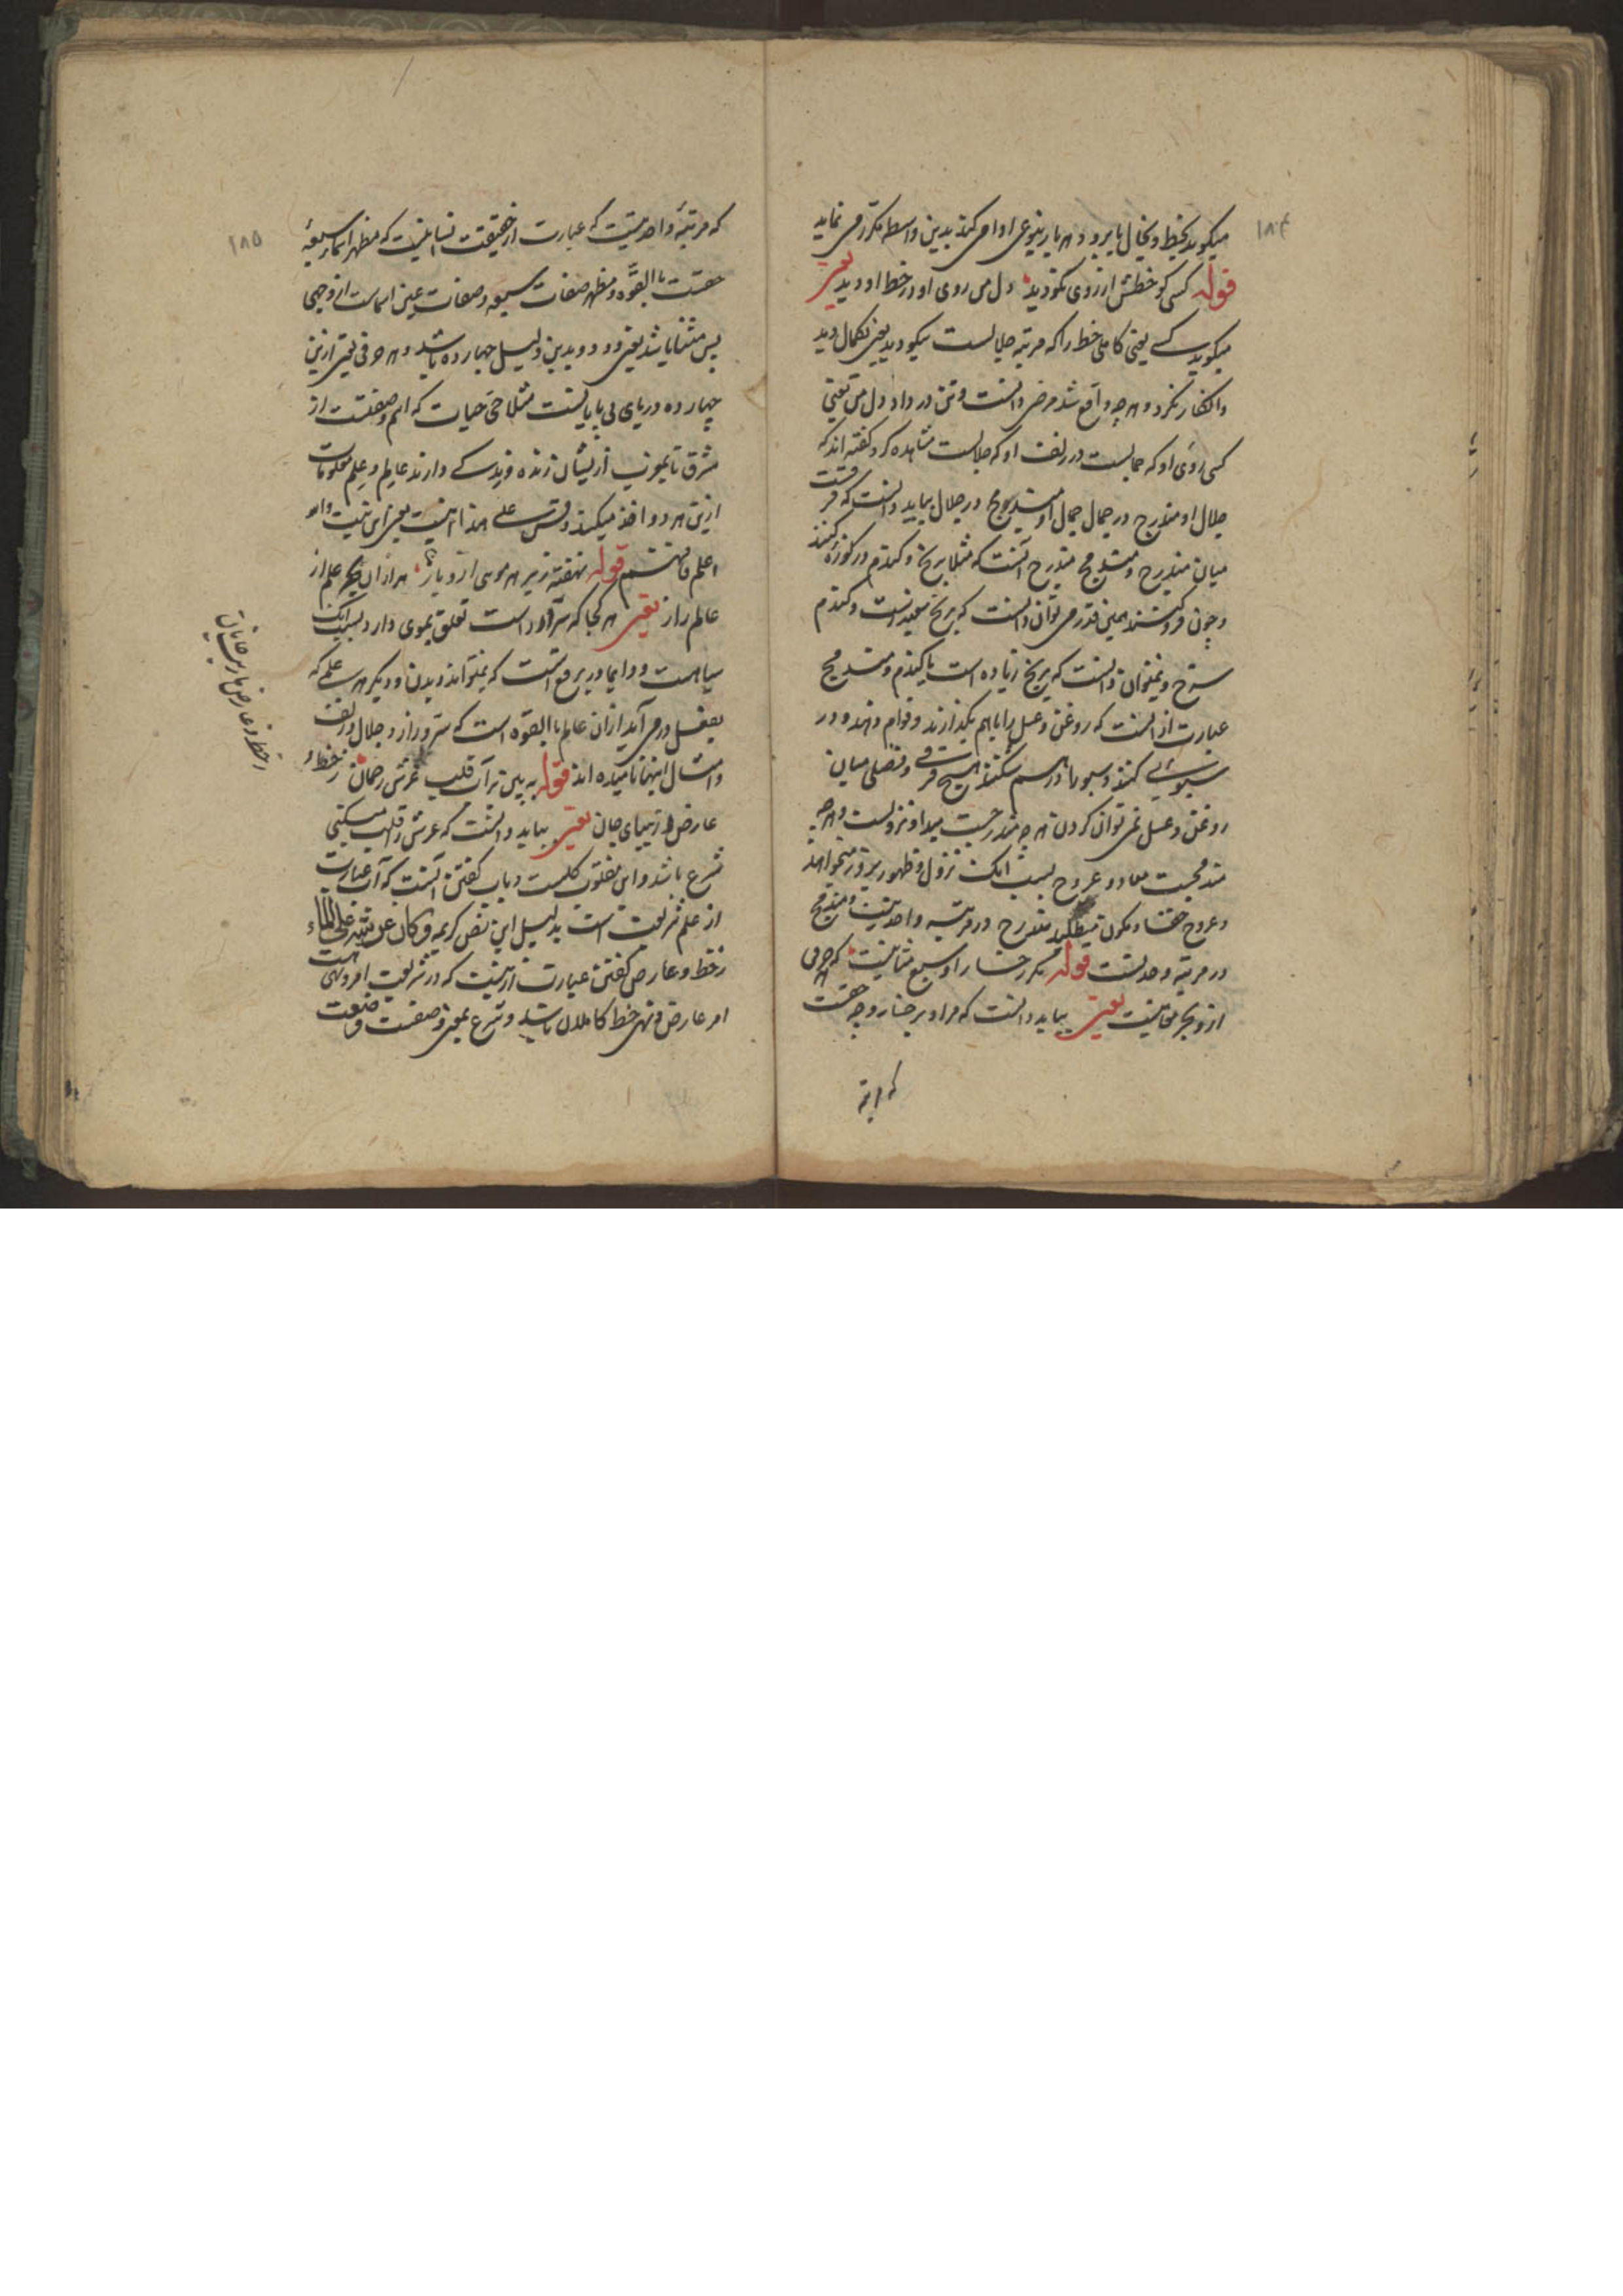 ۱۸۴
میگوید بخط و بخال یا برو و هر بار بنوعی ادا می کند بدین واسطه مکرر می نماید
قوله کسی کو خطش از روی نکو دید دل من روی او در خط او دید یعنی
میگوید کسے یعنی کاملی خط را که مرتبه جلالست نیکو دید یعنی بکمال دید
و انکار نکرد و هر چه واقع شد مرضی دانست و تن در داد دل من یعنی
کسی روی او که جمالست در زلف او که جلالست مشاهده کرد و گفته اند که
جلال او مندرج در جمال جمال او مندمج در جلال بباید دانست که فرقست
میان مندرج و مندمج مندرج آنست که مثلا برنج و گندم در کوزه کنند
و چون فروکنند همین قدر می توان دانست که برنج سفیدست و گندم
سرخ و نمیتوان دانست که برنج زیاده است یا گندم و مندمج
عبارت از آنست که روغن و عسل را باهم بگذارند و قوام دهند و در
سبویی کنند و سبو را درهم شکنند هیچ فرقے و فصلی میان
روغن و عسل نمی توان کردن هر چه مندرجست مبدا و نزولست و هر چه
مندمجست معاد و عروج بسبب آنک نزول و ظهور بروز میخواهد
و عروج خفا و مکون میطلبد مندرج در مرتبه واحدیتست و مندمج
در مرتبه وحدتست قوله مگر رخسار او سبع مثانیست که هر حرفی
ازو بحر معانیست یعنی بباید دانست که مراد بر رخسار وجه حقست
که مرتبه
۱۸۵
که مرتبهٔ واحدیتست که عبارت از حقیقت انسانیست که مظهر اسماء سبعهٔ
حقست بالقوّه و مظهر صفات سبعه و صفات عین اسماست از وجهی
پس مثنا باشد یعنی دو دو و بدین دلیل چهارده باشد و هر حرفی یعنی ازین
چهارده دریای بی پایانست مثلا حی حیات که اسم و صفتست از
مشرق تا بمغرب از ایشان زنده و زندگے دارند عالم و علم معلومات
ازین هر دو اخذ میکنند و قس علے هذا اینست معنی این بیت والله
اعلم فافهم قوله نهفته زیر هر موی ازو باز هزاران بحر علم از
عالم راز یعنی هر کجا که سر او است تعلق بموی دارد بسبب آنک
سیاهست و دایما در برقع است که نمیتواند دیدن و دیگر هر علمے که
بفعل درمی آید از آن عالم بالقوّه است که سر و راز و جلال و زلف
و امثال اینها نامیده اند قوله به بین بر آب قلب عرش رحمان ز خط و
عارض زیبای جان یعنی بباید دانست که عرش و قلب مبتنی
شرع باشد و این مقلوب کلیست و باب گفتن آنست که آب عبارت
از علم شریعت است بدلیل این نص کریمه وکان عرشه علی الماء
ز خط و عارض گفتن عبارت ازینست که در شریعت امر و نهی هست
امر عارض و نهی خط کاملان باشد و شرع بمعنی صفت و صنعت